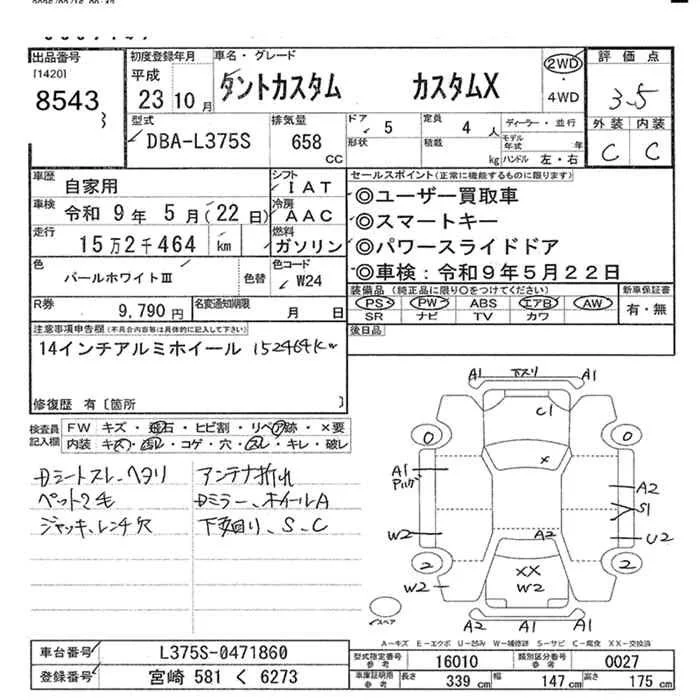 出品番号
[1420]
8543
3
初度登録年月
平成
23 10月
車名・グレード
タントカスタム カスタムX
2WD
・
4WD
評価点
3.5
外装 内装
C C
型式
DBA-L375S
排気量
658
CC
ドア
5
形状
定員
4 人
積載
kg
ディーラー・並行
モデル年式 年
ハンドル 左・右
車歴
自家用
車検 令和 9年 5月(22日)
走行
15万2千464 km
シフト
IAT
冷房
AAC
燃料
ガソリン
セールスポイント(正常に機能するものに限ります)
◎ユーザー買取車
◎スマートキー
◎パワースライドドア
◎車検:令和9年5月22日
色
パールホワイトⅢ
色替
色コード
W24
R券
9,790円
名変通知期限
月 日
装備品 (純正品に限り○をつけてください)
PS PW ABS エアB AW
SR ナビ TV カワ
新車保証書
有・無
後日品
注意事項申告欄(不具合内容等は具体的に記入して下さい)
14インチアルミホイール 152464km
修復歴 有〔箇所 〕
検査員記入欄
FW キズ・飛石・ヒビ割・リペア跡・×要
内装 キズ・汚レ・コゲ・穴・スレ・キレ・破レ
Dシートスレ、ヘタリ
ペット2毛
ジャッキ、レンチ欠
アンテナ折れ
Dミラー、ホイールA
下廻り、S、C
A1 下スリ A1
C1
0 0
×
A1
A2
S1
W2 A2 U2
2 2
W2 XX
W2
A1 A2 A1
スペア
A-キズ E-エクボ U-凹ミ W-補修跡 S-サビ C-腐食 XX-交換済
車台番号 L375S-0471860
登録番号 宮崎 581 く 6273
型式指定番号 参考 16010
類別区分番号 参考 0027
車庫証明用 参考 長さ 339 cm 幅 147 cm 高さ 175 cm